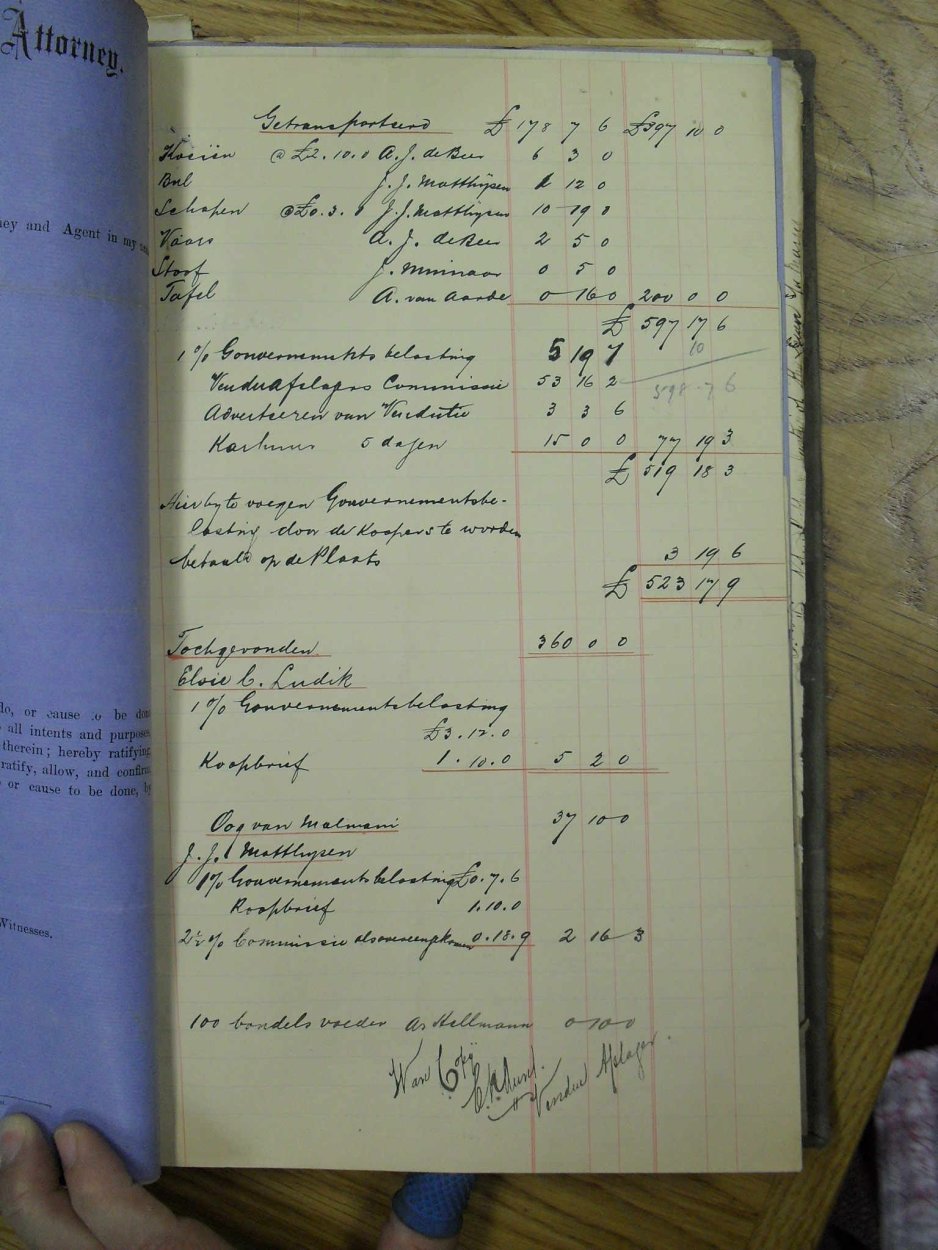 Attorney.
Getransporteerd £ 178 7 6 £397 10 0
Koeien @ £2.10.0 A. J. de Beer 6 3 0
Bul J. J. Matthysen 12 0
Schapen @ £0.3.0 J. J. Matthysen 10 19 0
Vaars A. J. de Beer 2 5 0
Stoof J. Minnaar 0 5 0
Tafel A. van Aarde 0 16 0 200 0 0
£ 597 17 6
10
1 % Gouvernements belasting 5 19 7
598 7 6
Vendu Afslagers Commissie 53 16 2
Adverteeren van Vendutie 3 3 6
Karhuur 5 dagen 15 0 0 77 19 3
£ 519 18 3
Hierby te voegen Gouvernementsbe-
lasting door de Koopers te worden
betaald op de Plaats 3 19 6
£ 523 17 9
ney and Agent in my
Tochgevonden 360 0 0
Elsie C. Ludik
1 % Gouvernementsbelasting
£3.12.0
Koopbrief 1.10.0 5 2 0
do, or cause to be done
all intents and purposes
therein; hereby ratifying
ratify, allow, and confirm
or cause to be done, by
Oog van Malmani 37 10 0
J. J. Matthysen
1% Gouvernementsbelasting £0.7.6
Koopbrief 1.10.0
2½ % Commissie als overeengekomen 0.18.9 2 16 3
Witnesses.
100 bondels voeder as Hellmann 0 10 0
Ware Copy
Vendu Afslager.